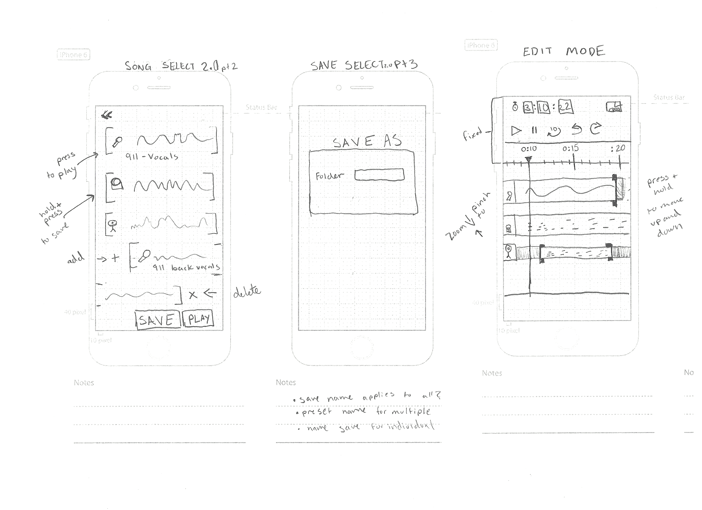 iPhone 6
SONG SELECT 2.0 pt 2
Status Bar
«
press
to play
911 - vocals
hold +
press
to save
add
+
911 back vocals
x
delete
SAVE
PLAY
Notes
SAVE SELECT 2.0 pt 3
SAVE AS
Folder
Notes
• save name applies to all?
• preset name for multiple
• name save for individual
iPhone 6
EDIT MODE
Status Bar
fixed
0:10
0:15
:20
pinch
to
zoom
press +
hold
to move
up and
down
Notes
No